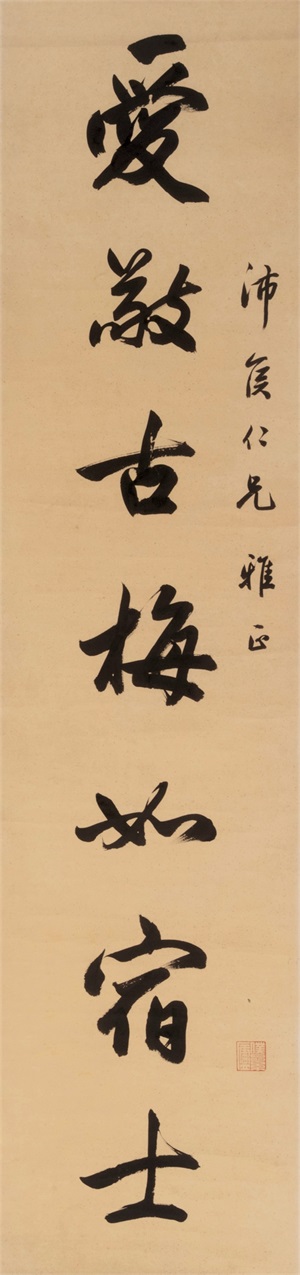 沛侯仁兄雅正
愛敬古梅如宿士